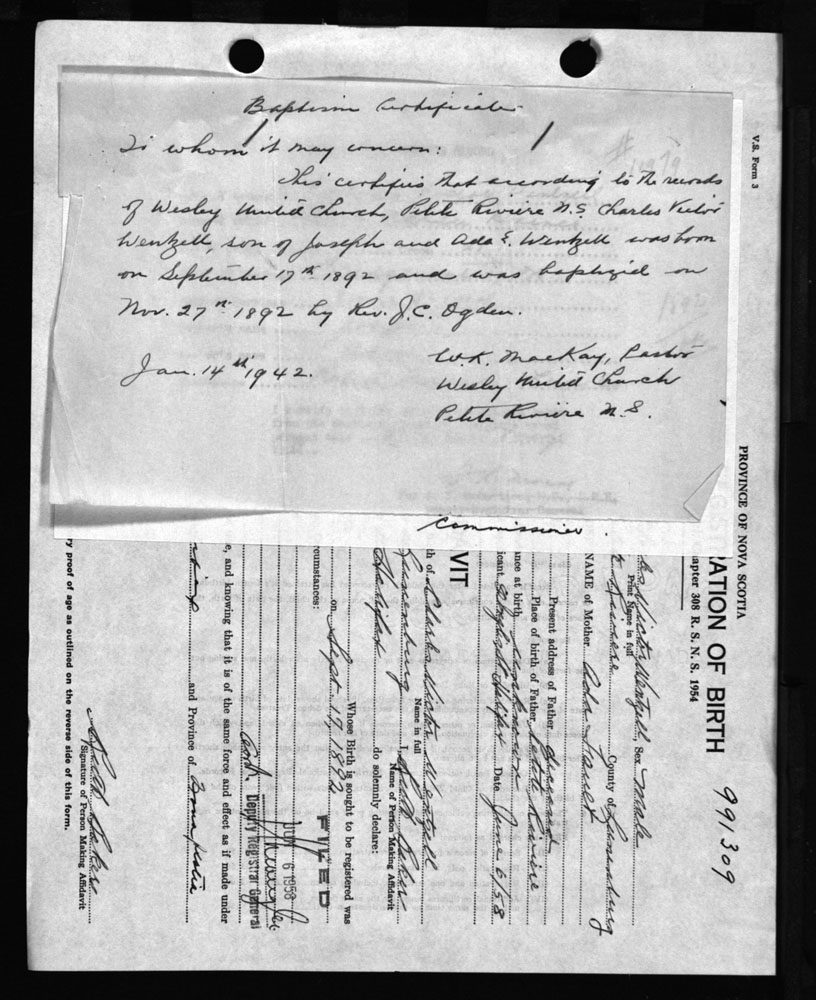 Baptism Certificate
To whom it may concern:
This certifies that according to the records
of Wesley United Church, Petite Riviere N.S. Charles Victor
Wentzell, son of Joseph and Ada E. Wentzell was born
on September 17th 1892 and was baptized on
Nov. 27th 1892 by Rev. J.C. Ogden.
Jan. 14th 1942.
W.K. MacKay, Pastor
Wesley United Church
Petite Riviere N.S.
Commissioner.
V.S. Form 3
PROVINCE OF NOVA SCOTIA
RATION OF BIRTH
991309
apter 308 R. S. N. S. 1954
Victor Wentzell Sex Male
Print Name in full
Riviere County of Lunenburg
NAME of Mother Ada
Present address of Father deceased
Place of birth of Father Petite Riviere
ance at birth unknown
icant Date June 6/58
VIT
th of Charles Victor Wentzell
Name in full
Lunenburg I, Ruth Baker
Name of Person Making Affidavit
Halifax do solemnly declare:
Whose Birth is sought to be registered was
on Sept. 17, 1892
rcumstances:
FILED
JUN 6 1958
Deputy Registrar General
e, and knowing that it is of the same force and effect as if made under
and Province of Nova Scotia
Ruth Baker
Signature of Person Making Affidavit
ry proof of age as outlined on the reverse side of this form.